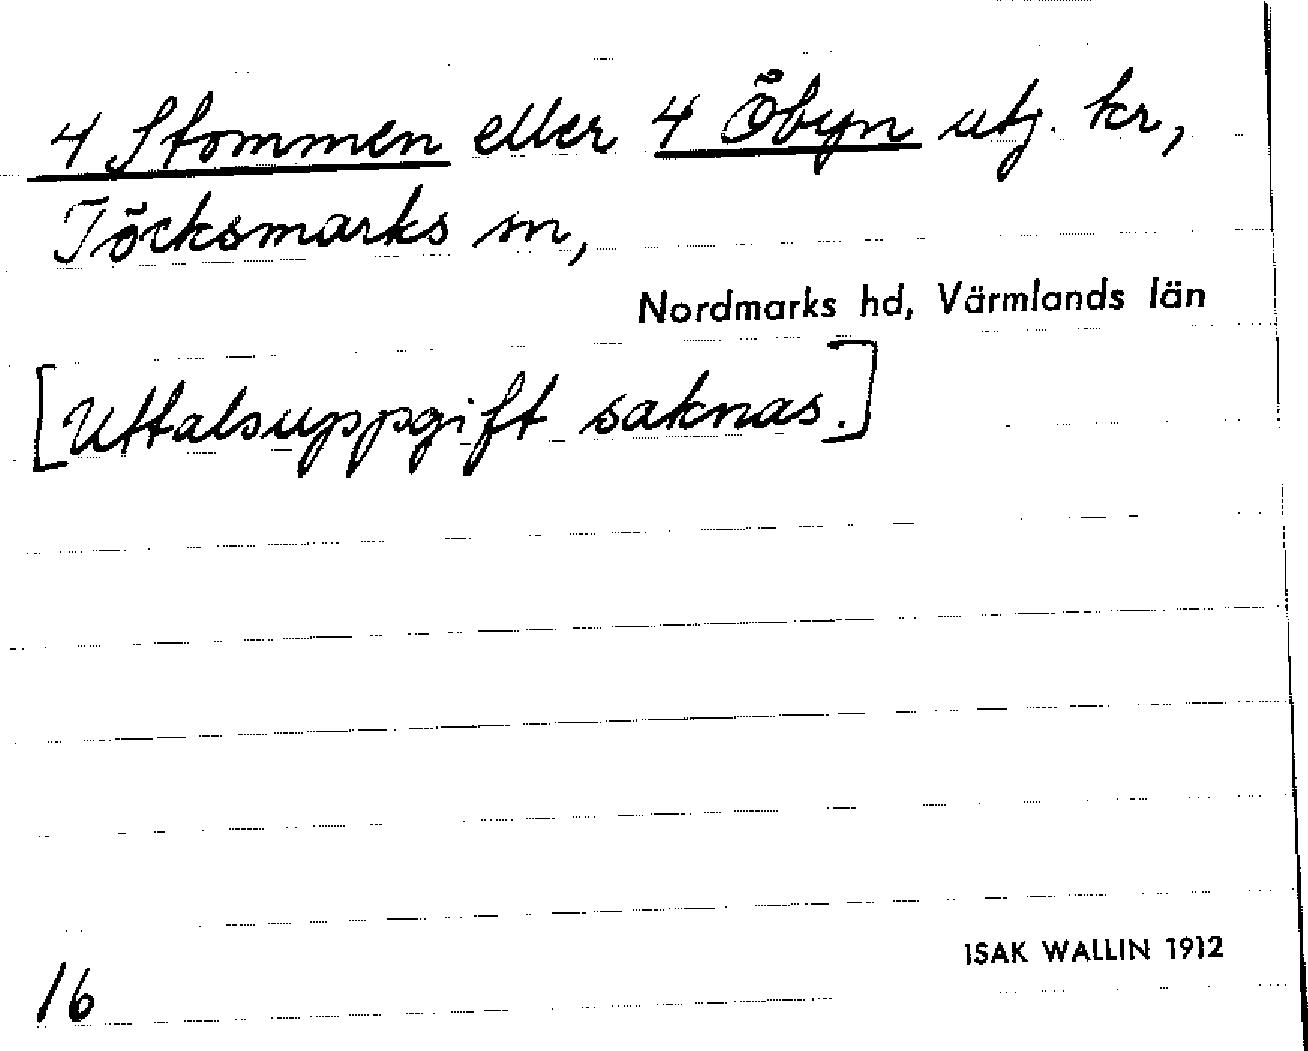 4 Stommen eller 4 Öbyn utj. kr,
Töcksmarks sn,
Nordmarks hd, Värmlands län
[Uttalsuppgift saknas.]
ISAK WALLIN 1912
16